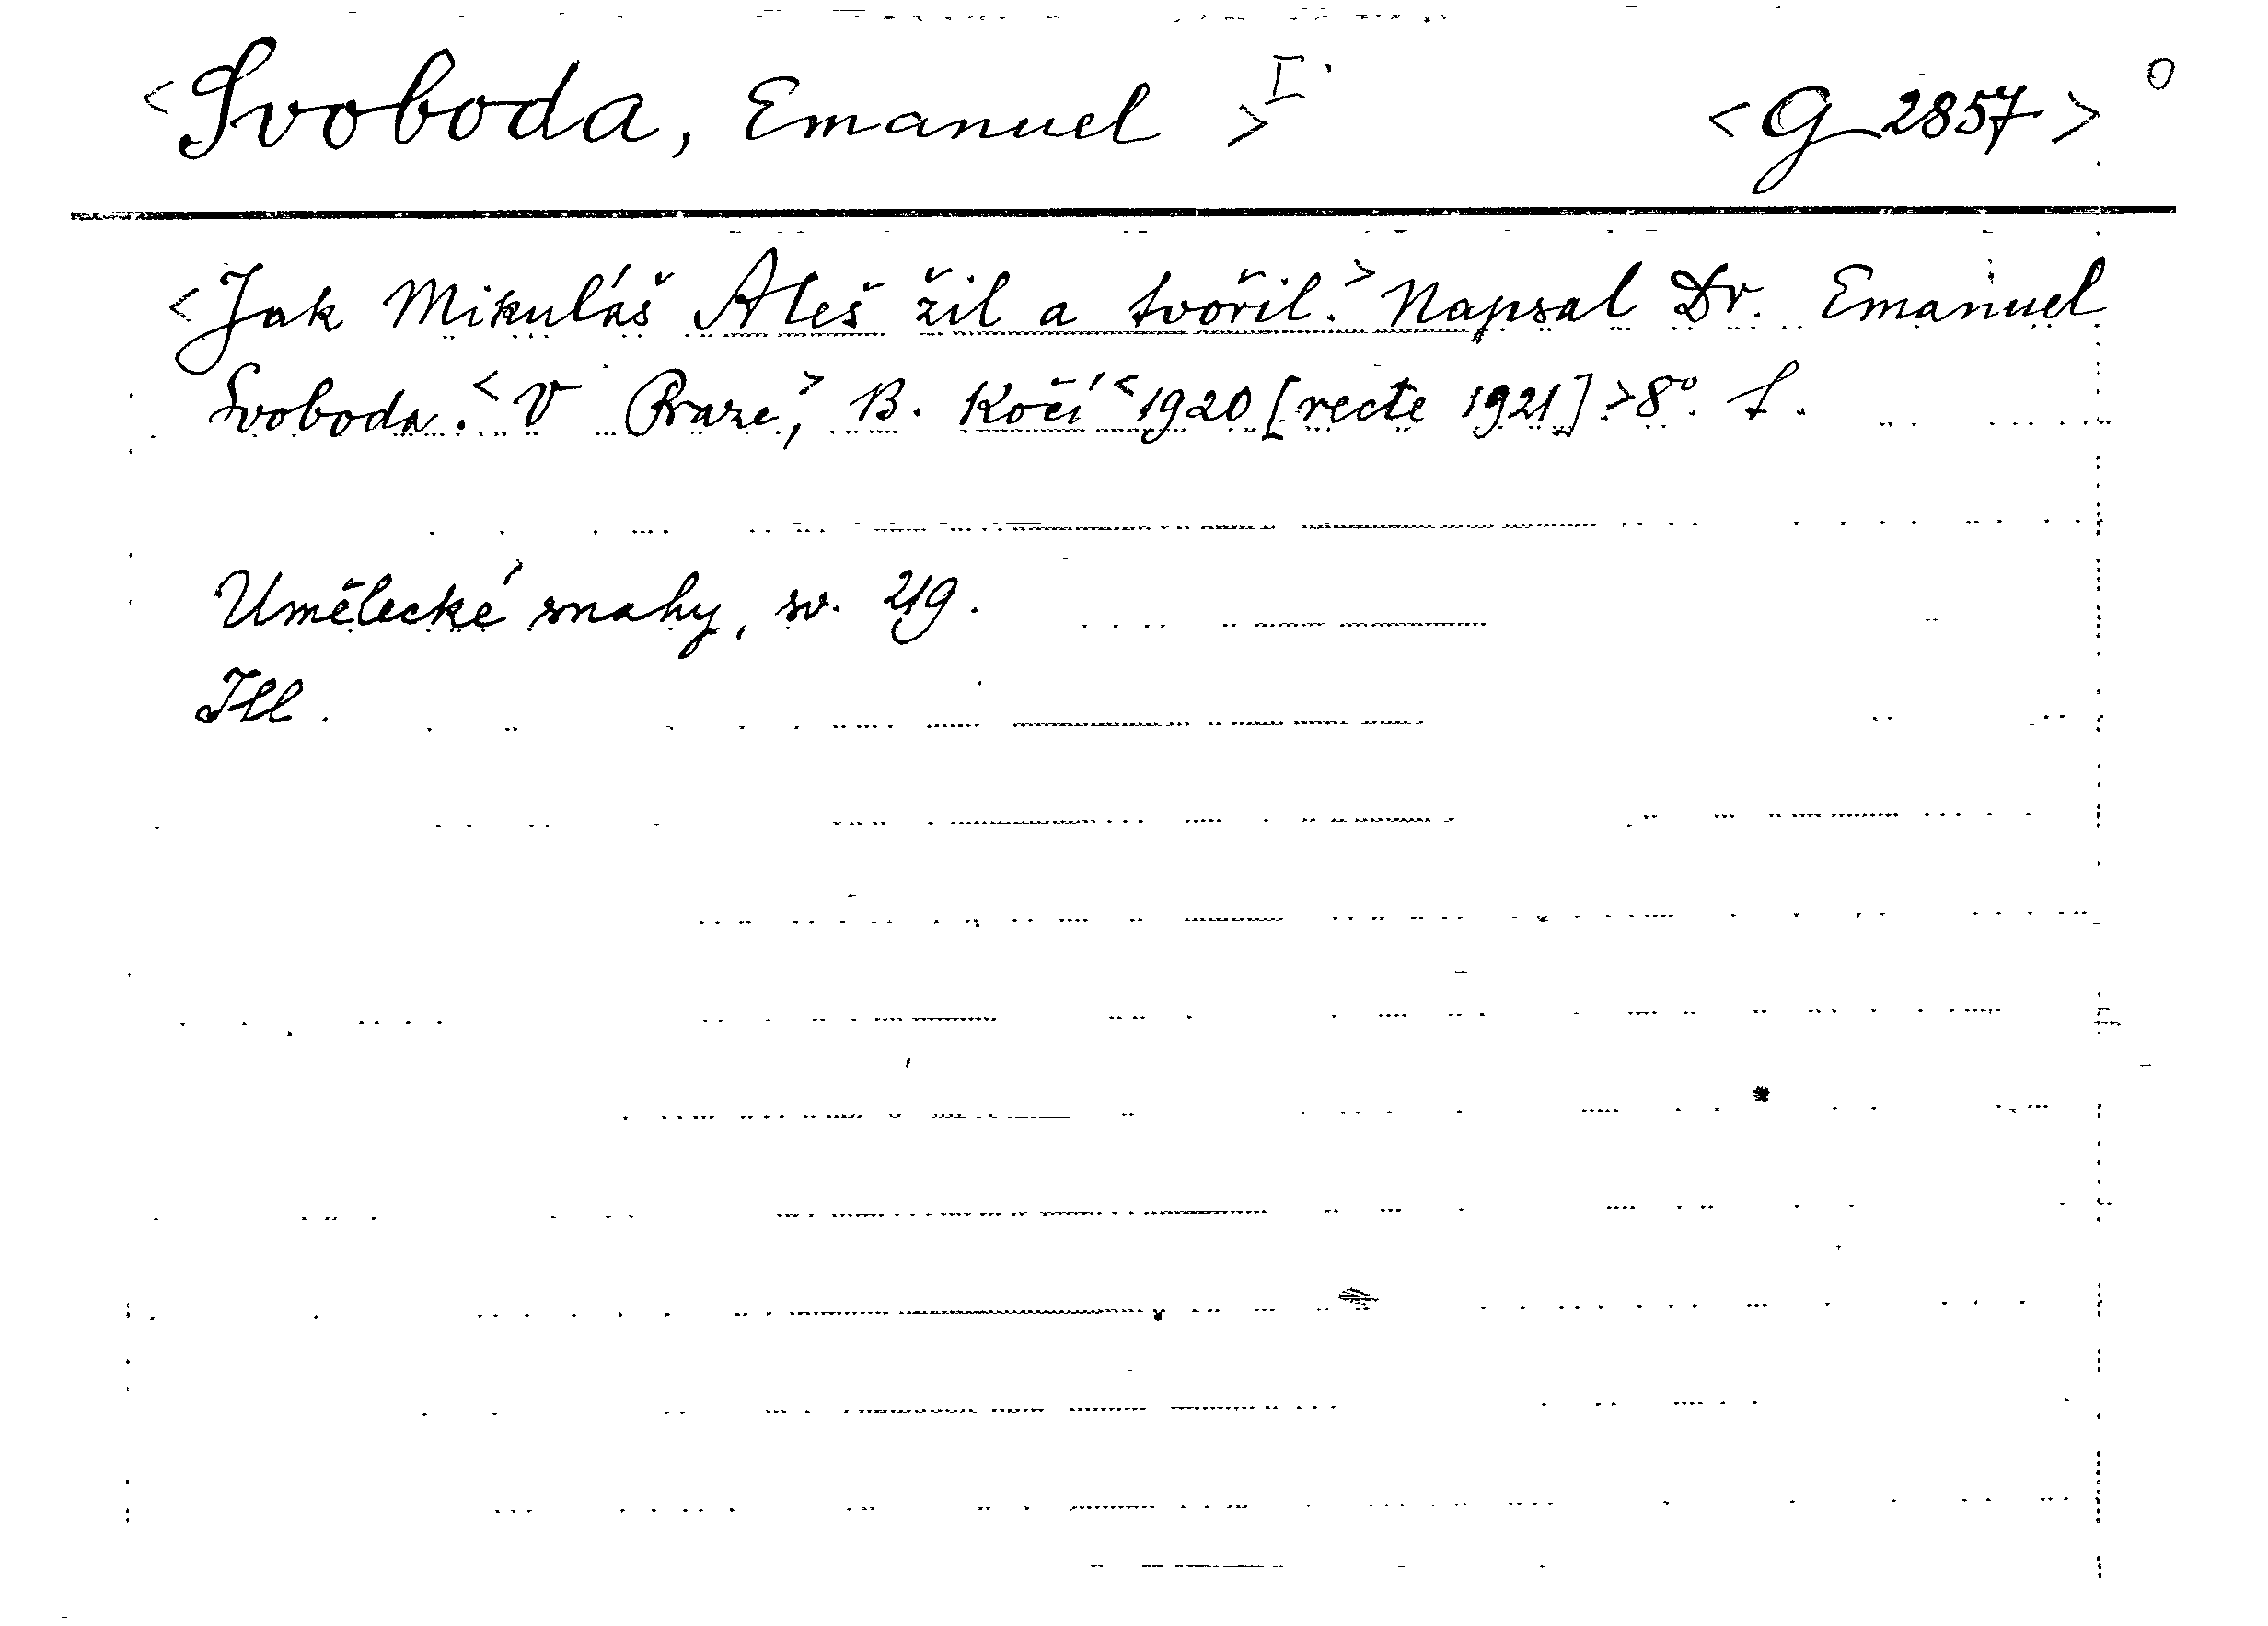 <Svoboda, Emanuel > I. <G 2857> 0
<Jak Mikuláš Aleš žil a tvořil.> Napsal Dr. Emanuel
Svoboda. <V Praze,> B. Kočí <1920 [recte 1921].> 8°. S.
Umělecké snahy, sv. 219.
Ill.